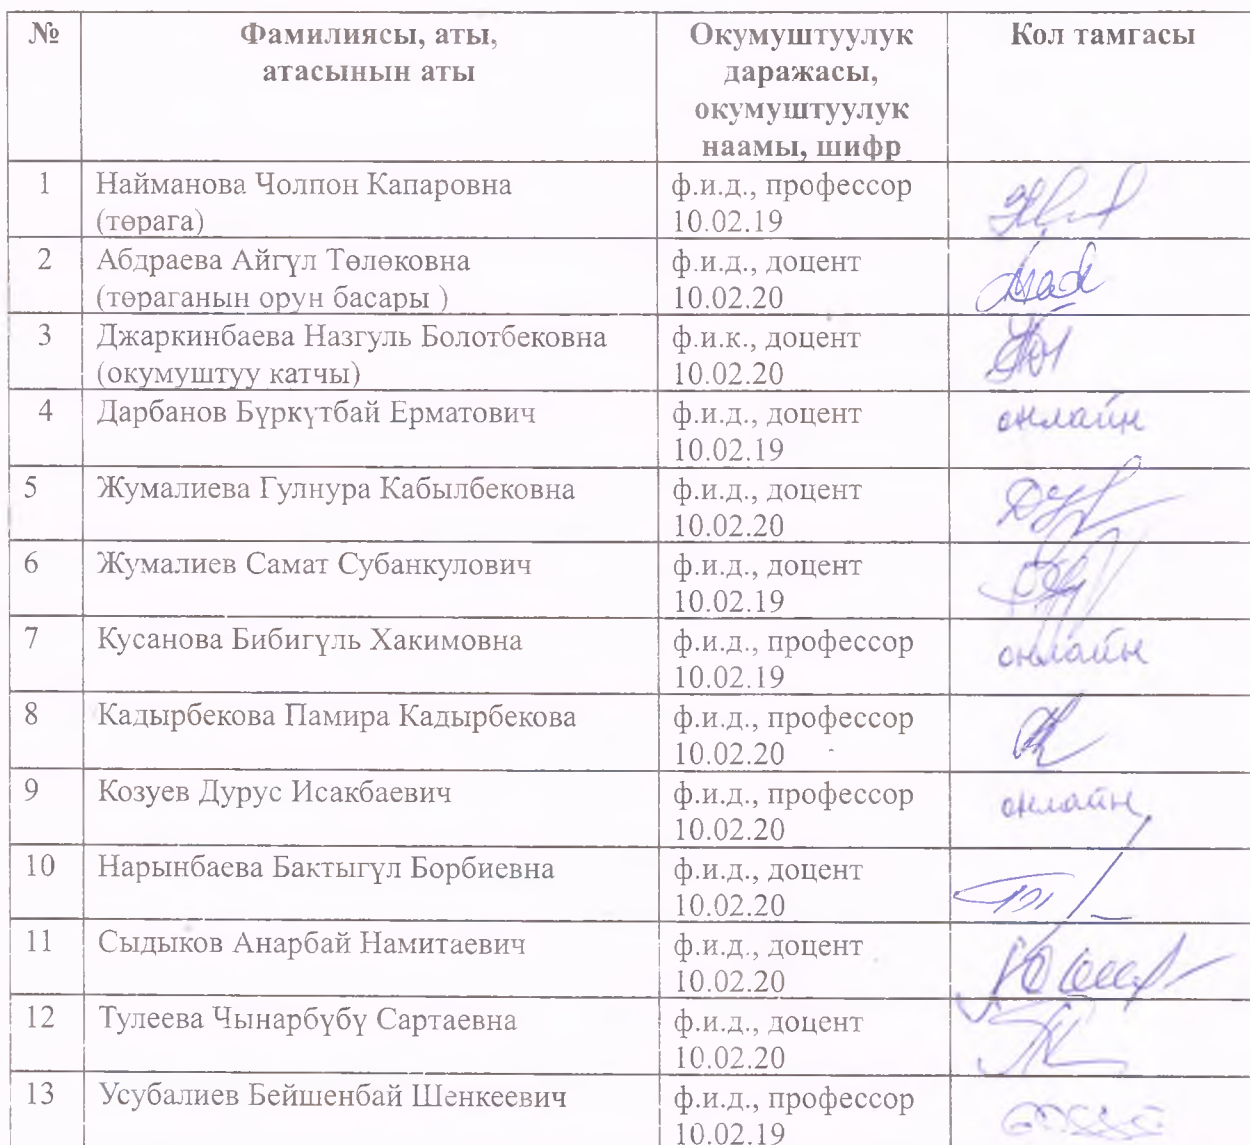 №
Фамилиясы, аты,
атасынын аты
Окумуштуулук
даражасы,
окумуштуулук
наамы, шифр
Кол тамгасы
1
Найманова Чолпон Капаровна
(төрага)
ф.и.д., профессор
10.02.19
2
Абдраева Айгүл Төлөковна
(төраганын орун басары )
ф.и.д., доцент
10.02.20
3
Джаркинбаева Назгуль Болотбековна
(окумуштуу катчы)
ф.и.к., доцент
10.02.20
4
Дарбанов Бүркүтбай Ерматович
ф.и.д., доцент
10.02.19
онлайн
5
Жумалиева Гулнура Кабылбековна
ф.и.д., доцент
10.02.20
6
Жумалиев Самат Субанкулович
ф.и.д., доцент
10.02.19
7
Кусанова Бибигүль Хакимовна
ф.и.д., профессор
10.02.19
онлайн
8
Кадырбекова Памира Кадырбекова
ф.и.д., профессор
10.02.20
9
Козуев Дурус Исакбаевич
ф.и.д., профессор
10.02.20
онлайн
10
Нарынбаева Бактыгүл Борбиевна
ф.и.д., доцент
10.02.20
11
Сыдыков Анарбай Намитаевич
ф.и.д., доцент
10.02.20
12
Тулеева Чынарбүбү Сартаевна
ф.и.д., доцент
10.02.20
13
Усубалиев Бейшенбай Шенкеевич
ф.и.д., профессор
10.02.19